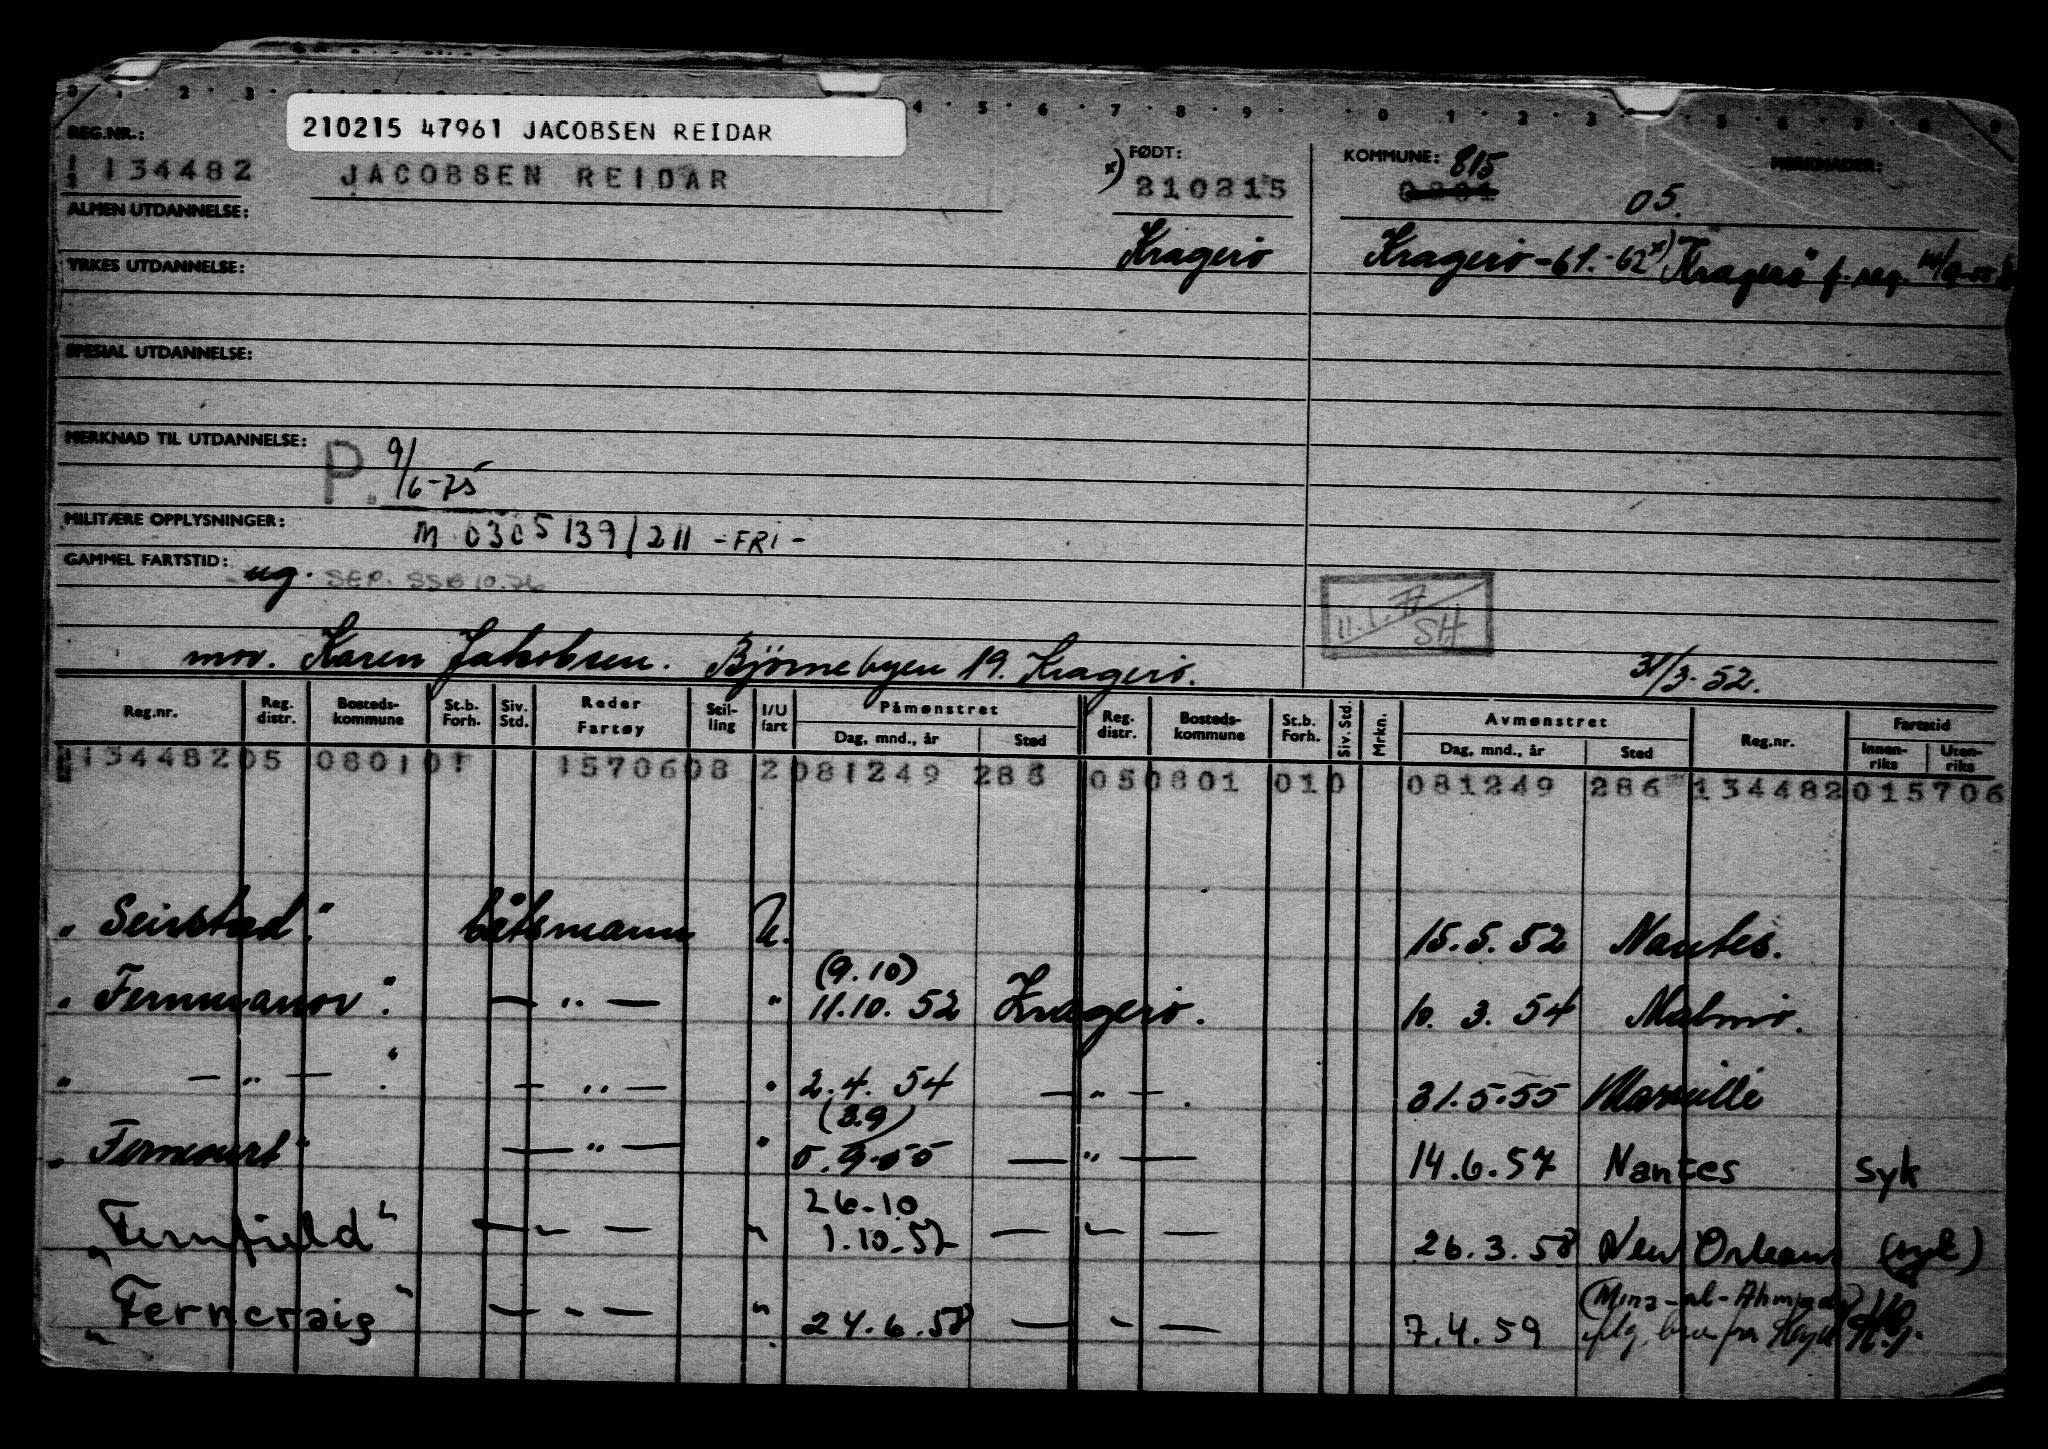 210215 47961 JACOBSEN REIDAR
REG.NR.:
134482
JACOBSEN REIDAR
x) FØDT:
210215
KOMMUNE: 815
0801
05.
MERKNADER:
ALMEN UTDANNELSE:
Kragerø
Kragerø -61.-62 x) Kragerø f. reg.
YRKES UTDANNELSE:
SPESIAL UTDANNELSE:
MERKNAD TIL UTDANNELSE:
P. 9/6-75
MILITÆRE OPPLYSNINGER:
M 0305139/211 -FRI-
GAMMEL FARTSTID:
ug.
11.1.77
SH
mor. Karen Jakobsen. Bjørnebyen 19. Kragerø.
31/3-52.
Reg.nr. Reg. distr. Bosteds-kommune St.b. Forh. Siv. Std. Reder Fartøy Stil-ling I/U fart Påmønstret Reg. distr. Bosteds-kommune St.b. Forh. Siv. Std. Mrkn. Avmønstret Reg.nr. Fartstid
Dag, mnd., år Sted Dag, mnd., år Sted Innen-riks Uten-riks
134482 05 0801 01 15706 08 2 081249 286 05 0801 01 0 081249 286 134482 015706
" Seirstad". båtsmann U. 15.5.52 Nantes.
(9.10)
" Fernmanor". — " — " 11.10.52 Kragerø. 10.3.54 Malmø.
" — " — ". — " — " 2.4.54 — " —. 31.5.55 Marseille
(3.9)
" Ferncourt" — " — " 5.9.55 — " — 14.6.57 Nantes syk
26-10
" Fernfield" — " — " 1.10-57 — " — 26.3.58 New Orleans (syk)
(Mina-al-Ahmadi)
" Ferncraig" — " — " 24.6.58 — " — 7.4.59